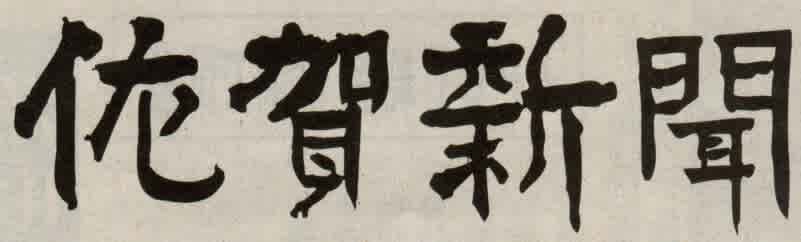 佐賀新聞